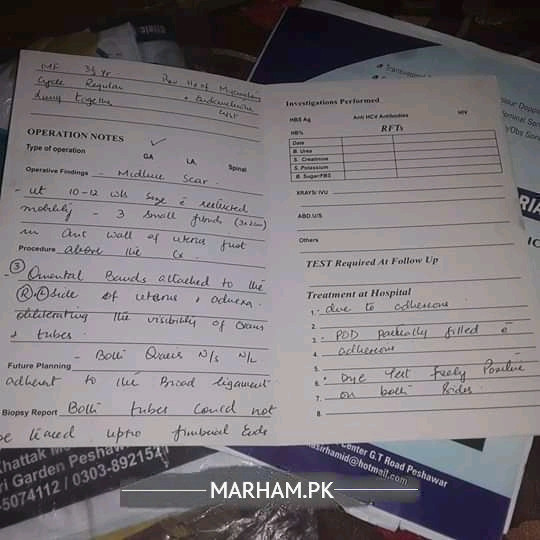 MF 3½ yr
Cycle Regular
living together
Prev H/o of
+ Endometriotic
cyst
OPERATION NOTES
Type of operation
GA LA. Spinal
Operative Findings - Midline Scar.
- ut 10-12 wks size c̄ restricted
mobility - 3 small fibroids (3x2cm)
in Ant wall of uterus just
Procedure above the Cx.
③ Omental Bands attached to the
Ⓡ + Ⓛ side of uterus + adnexa.
obliterating the visibility of Ovaries
+ tubes.
- Both Ovaries N/S N/L.
Future Planning
adherent to the Broad ligament
Biopsy Report Both tubes could not
be traced upto fimbrial Ends
Investigations Performed
HBS Ag Anti HCV Antibodies HIV
HB% RFTs
Date
B. Urea
S. Creatinine
S. Potassium
B. Sugar/FBS
XRAYS/ IVU
ABD.U/S
Others
TEST Required At Follow Up
Treatment at Hospital
1. due to adhesions.
2.
3. POD Partially filled c̄
4. adhesions
5.
6. Dye test freely Positive
7. on both Sides.
8.
Khattak
ri Garden Peshaw
-5074112 / 0303-8921521
Center G.T Road Peshawar
asirhamid@hotmail.com
MARHAM.PK